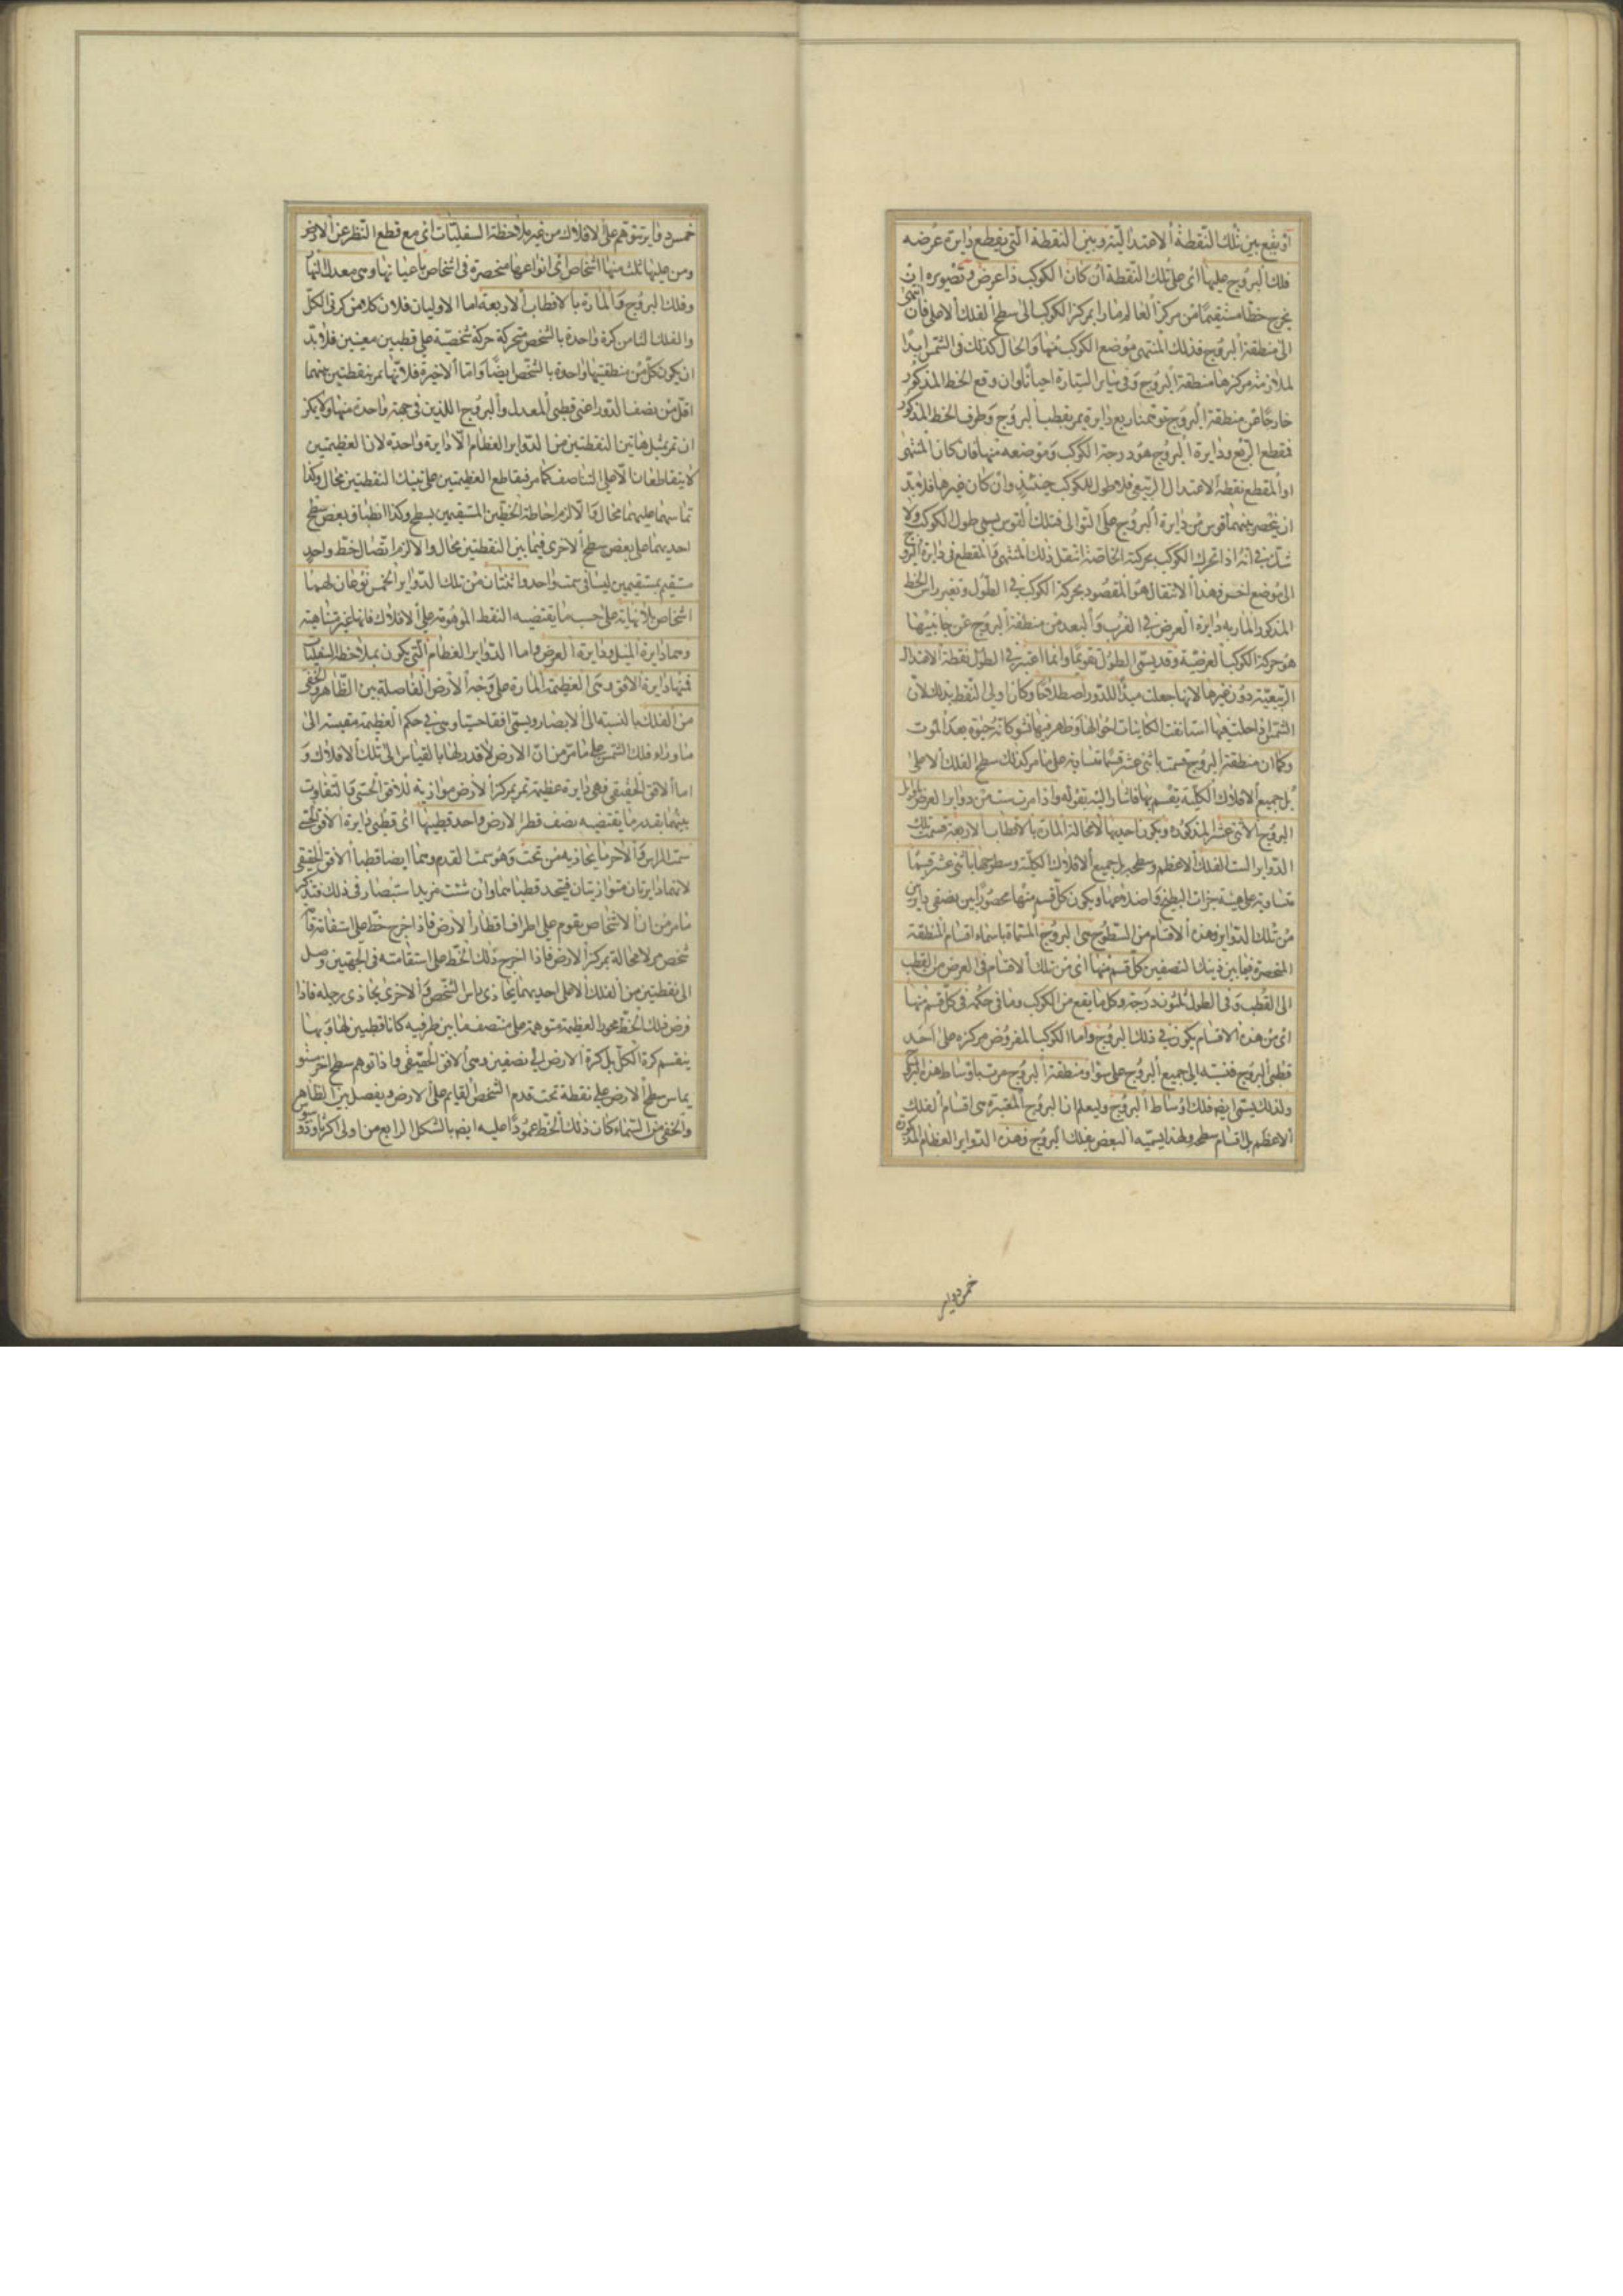 او يقع بين تلك النقطة الاعتدالية وبين النقطة التى يقطع دايرة عرضه
فلك البروج عليها اى على تلك النقطة ان كان الكوكب ذا عرض وتصويره ان
يخرج خطا مستقيما من مركز العالم مارا بمركز الكوكب الى سطح الفلك الاعلى فان انتهى
الى منطقة البروج فذلك المنتهى موضع الكوكب منها والحال كذلك فى الشمس ابدا
لملازمة مركزها منطقة البروج وفى ساير السيارة احيانا وان وقع الخط المذكور
خارجا عن منطقة البروج توهمنا ربع دايرة يمر بقطب البروج وطرف الخط المذكور
فمقطع الربع ودايرة البروج هو درجة الكوكب وموضعه منها فان كان المنتهى
او المقطع نقطة الاعتدال الربيعى فلا طول للكوكب حينئذ وان كان غيرها فلا بد
ان ينحصر بينهما قوس من دايرة البروج على التوالى فتلك القوس يسمى طول الكوكب ولا
شك فى انه اذا تحرك الكوكب بحركته الخاصة انتقل ذلك المنتهى والمقطع فى دايرة البروج
الى موضع اخر وهذا الانتقال هو المقصود بحركة الكوكب فى الطول وتغير راس الخط
المذكور المار به دايرة العرض فى القرب والبعد من منطقة البروج عن جانبيها
هو حركة الكوكب العرضية وقد يسمى الطول تقويما وانما اعتبر فى الطول نقطة الاعتدال
الربيعية دون غيرها لانها جعلت مبدأ للدور اصطلاحا وكان اولى النقط بذلك لان
الشمس اذا حلت فيها استانفت الكاينات احوالها وظاهر فيها نشو كانه حيوة بعد الموت
وكما ان منطقة البروج قسمت باثنى عشر قسما متساوية على ما مر كذلك سطح الفلك الاعلى
بل جميع الافلاك الكلية يقسم بها فاشار اليه بقوله واذا مرت ست من دواير العرض باوايل
البروج الاثنى عشر المذكورة ويكون احديها لا محالة المارة بالاقطاب الاربعة قسمت تلك
الدواير الست الفلك الاعظم وسطحه بل جميع الافلاك الكلية وسطوحها باثنى عشر قسما
متساوية على هيئة جزات البطيخ واضلاعها ويكون كل قسم منها محصورا بين نصفى دايرتين
من تلك الدواير وهذه الاقسام من السطوح هى البروج المسماة باسماء اقسام المنطقة
المنحصرة فيما بين ذينك النصفين كل قسم منها اى من تلك الاقسام فى العرض من القطب
الى القطب وفى الطول ثلثون درجة وكل ما يقع من الكوكب وما فى حكمه فى كل قسم منها
اى من هذه الاقسام يكون فى ذلك البروج واما الكوكب المفروض مركزه على احد
قطبى البروج فنسبته الى جميع البروج على سوا ومنطقة البروج مرت باوساط هذه البروج
ولذلك يسمى ايضا فلك اوساط البروج وليعلم ان البروج المعتبرة هى اقسام الفلك
الاعظم بل اقسام سطحه ولهذا يسميه البعض بفلك البروج وهذه الدواير العظام المذكورة
خمس دواير
خمس دواير يتوهم على الافلاك من غير ملاحظة السفليات اى مع قطع النظر عن الارض
ومن عليها ثلث منها اشخاص اى انواعها منحصرة فى اشخاص باعيانها وهى معدل النهار
وفلك البروج والمارة بالاقطاب الاربعة اما الاوليان فلان كلا من كرتى الكل
والفلك الثامن كرة واحدة بالشخص متحركة حركة شخصية على قطبين معينين فلا بد
ان يكون كل من منطقتيها واحدة بالشخص ايضا واما الاخيرة فلانها تمر بنقطتين بينهما
اقل من نصف الدور اعنى قطبى المعدل والبروج اللذين فى جهة واحدة منها ولا يمكن
ان تمر بمثل هاتين النقطتين من الدواير العظام الا دايرة واحدة لان العظيمتين
لا يتقاطعان الا على التناصف كما مر فتقاطع العظيمتين على تينك النقطتين محال وكذا
تماسهما عليهما محال والا لزم احاطة الخطين المستقيمين بسطح وكذا انطباق بعض سطح
احديهما على بعض سطح الاخرى فيما بين النقطتين محال والا لزم اتصال خط واحد
مستقيم بمستقيمين ليسا فى سمت واحد واثنتان من تلك الدواير الخمس نوعان لهما
اشخاص بلا نهاية على حسب ما يقتضيه النقط الموهومة على الافلاك فانها غير متناهية
وهما دايرة الميل ودايرة العرض واما الدواير العظام التى يكون بملاحظة السفليات
فمنها دايرة الافق وهى العظيمة المارة على وجه الارض الفاصلة بين الظاهر والخفى
من الفلك بالنسبة الى الابصار ويسمى افقا حسيا وهى فى حكم العظيمة مقيسة الى
ما وراء فلك الشمس على ما مر من ان الارض لا قدر لها بالقياس الى تلك الافلاك و
اما الافق الحقيقى فهى دايرة عظيمة تمر بمركز الارض موازية للافق الحسى والتفاوت
بينهما بقدر ما يقتضيه نصف قطر الارض واحد قطبيها اى قطبى دايرة الافق الحسى
سمت الراس والاخر ما يحاذيه من تحت وهو سمت القدم وهما ايضا قطبا الافق الحقيقى
لانهما دايرتان متوازيتان فيتحد قطباهما وان شئت مزيد استبصار فى ذلك فتذكر
ما مر من ان الاشخاص يقوم على اطراف اقطار الارض فاذا اخرج خط على استقامة قامة
شخص مر لا محالة بمركز الارض فاذا اخرج ذلك الخط على استقامته فى الجهتين وصل
الى نقطتين من الفلك الاعلى احديهما يحاذى راس الشخص والاخرى يحاذى رجله فاذا
فرض ذلك الخط محورا لعظيمة متوهمة على منتصف ما بين طرفيه كانا قطبين لها وبها
ينقسم كرة الكل بل كرة الارض الى نصفين وهى الافق الحقيقى واذا توهم سطح اخر مستو
يماس سطح الارض على نقطة تحت قدم الشخص القايم على الارض ويفصل بين الظاهر
والخفى من السماء كان ذلك الخط عمودا عليه ايضا بالشكل الرابع من اولى اكر ثاوذوسيوس